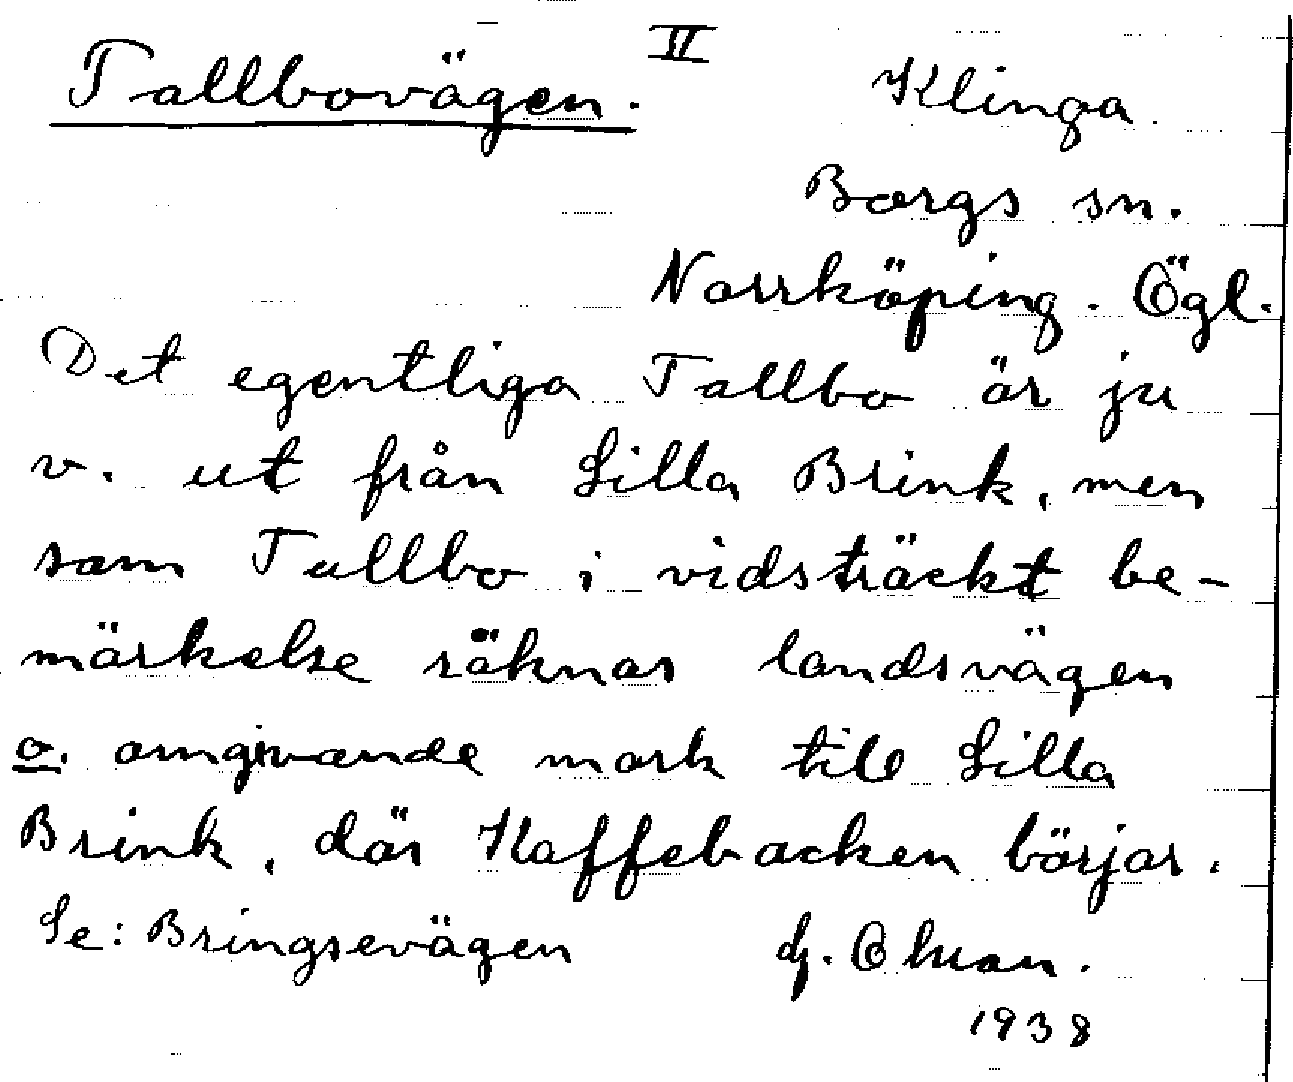 II
Tallbovägen. Klinga.
Borgs sn.
Norrköping. Ögl.
Det egentliga Tallbo är ju
v. ut från Lilla Brink, men
som Tallbo i vidsträckt be-
märkelse räknas landsvägen
o. omgivande mark till Lilla
Brink, där Kaffebacken börjar.
Se: Bringsevägen
1938